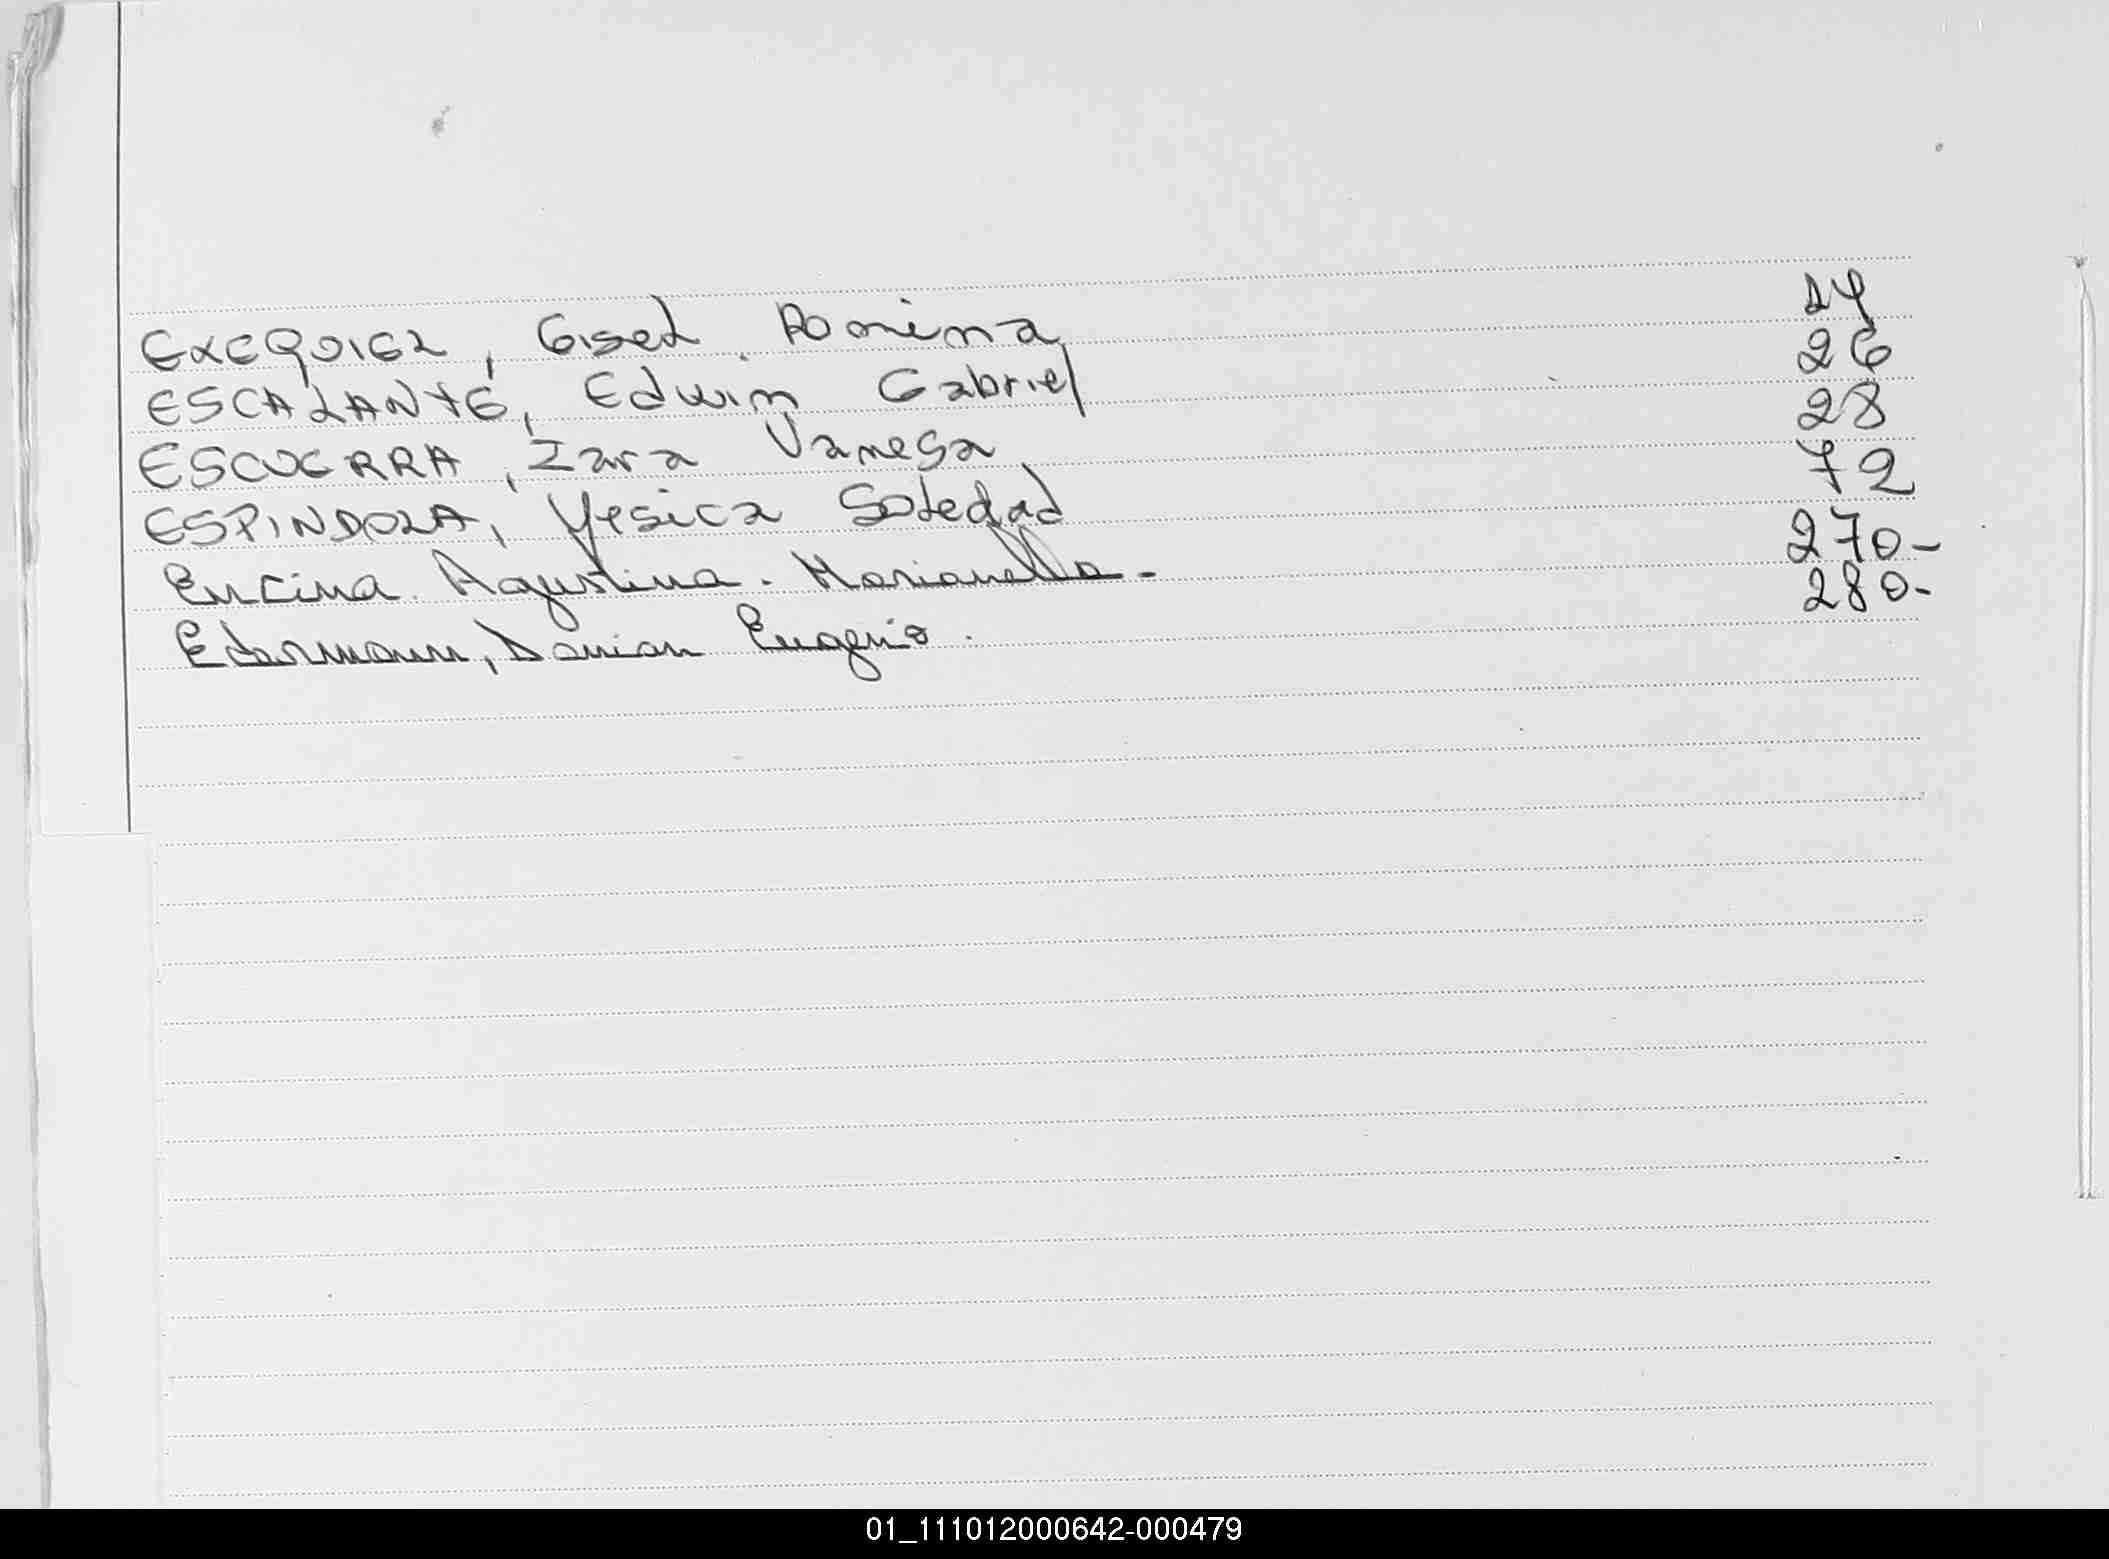 EXEQUIEL, Gisel Romina 14
ESCALANTE, Edwin Gabriel 26
ESCUERRA, Zara Vanesa 28
ESPINDOLA, Yesica Soledad 72
Encina Agustina. Marianella. 270-
Edarmann, Damian Eugenio. 280-
01_111012000642-000479